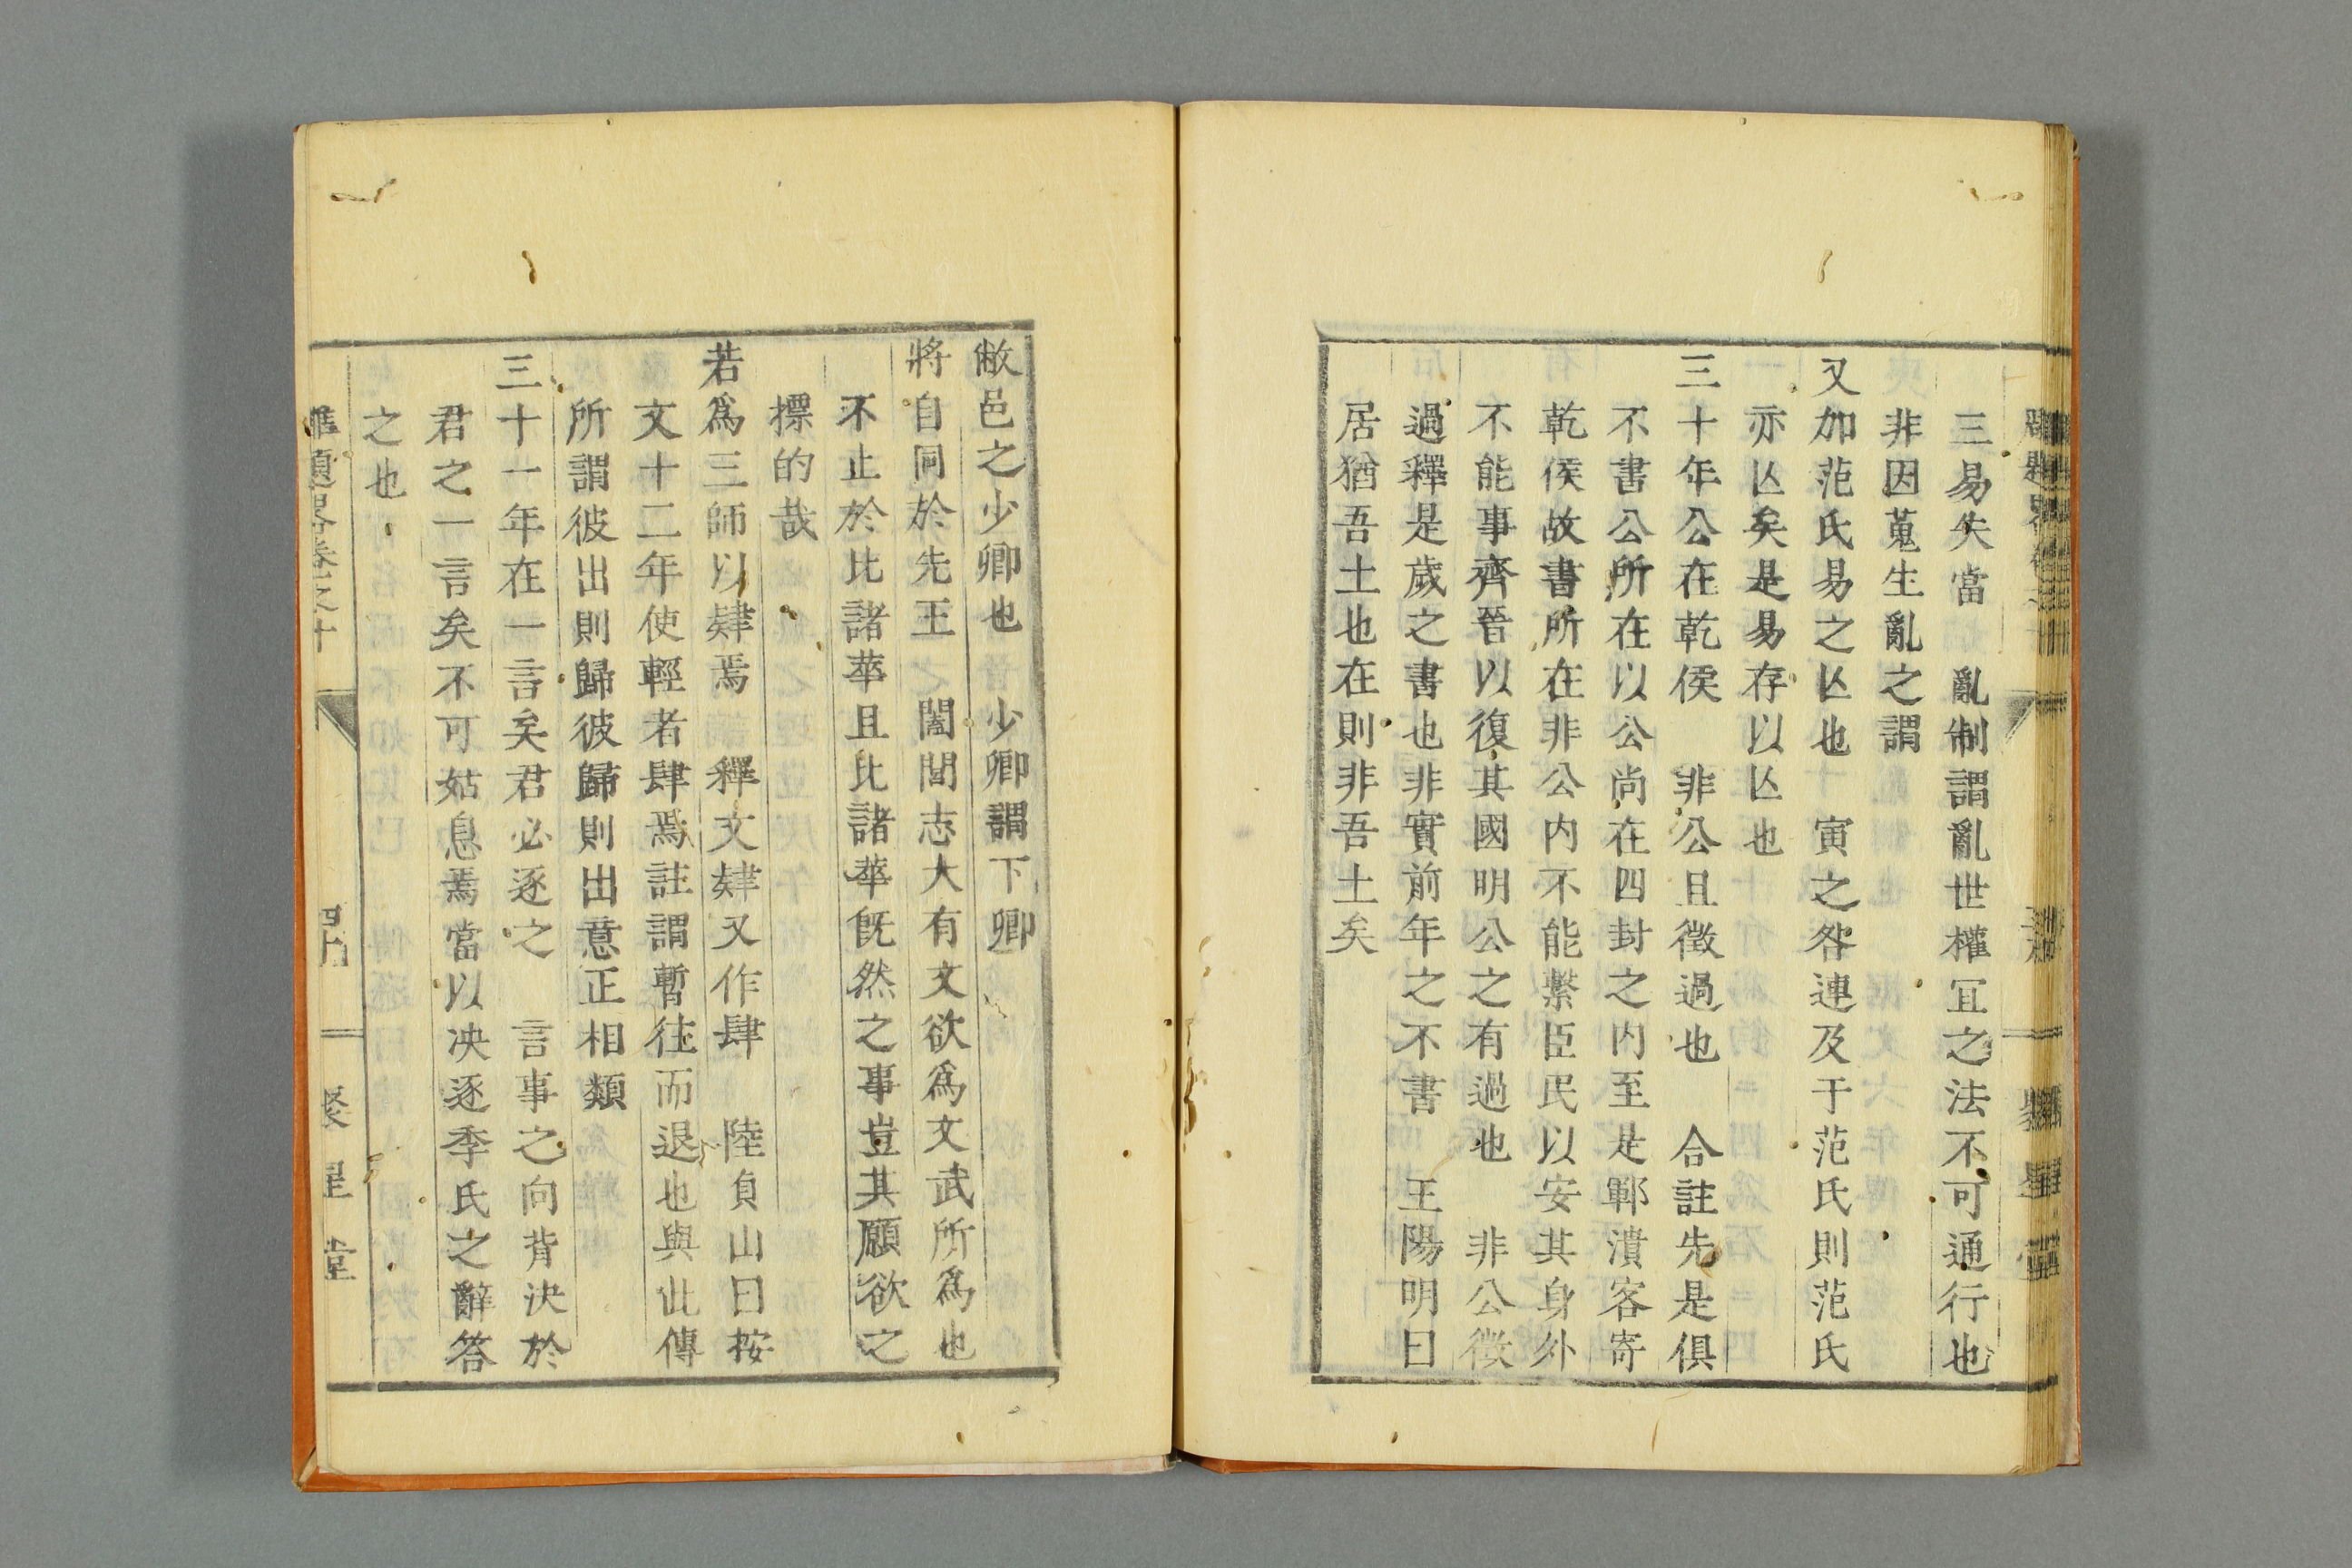 三易失當　亂制謂亂世權冝之法不可通行也
非因蒐生亂之謂
又加范氏易之亾也　寅之咎連及于范氏則范氏
亦亾矣是易存以亾也
三十年公在乾侯　非公且徵過也　合註先是俱
不書公所在以公尚在四封之内至是鄆潰客寄
乾侯故書所在非公内不能繫臣民以安其身外
不能事齊晉以復其國明公之有過也　非公徵
過釋是歲之書也非實前年之不書　王陽明曰
居猶吾土也在則非吾土矣
敝邑之少卿也　少卿謂下卿
將自同於先王　闔閭志大有文欲爲文武所爲也
不止於比諸華且比諸華旣然之事豈其願欲之
摽的哉
若爲三師以肄焉　釋文肄又作肆　陸貞山曰按
文十二年使輕者肆焉註謂暫往而退也與此傳
所謂彼出則歸彼歸則出意正相類
三十一年在一言矣君必逐之　言事之向背決於
君之一言矣不可姑息焉當以决逐季氏之辭答
之也
雕題畧卷之十
聚星堂